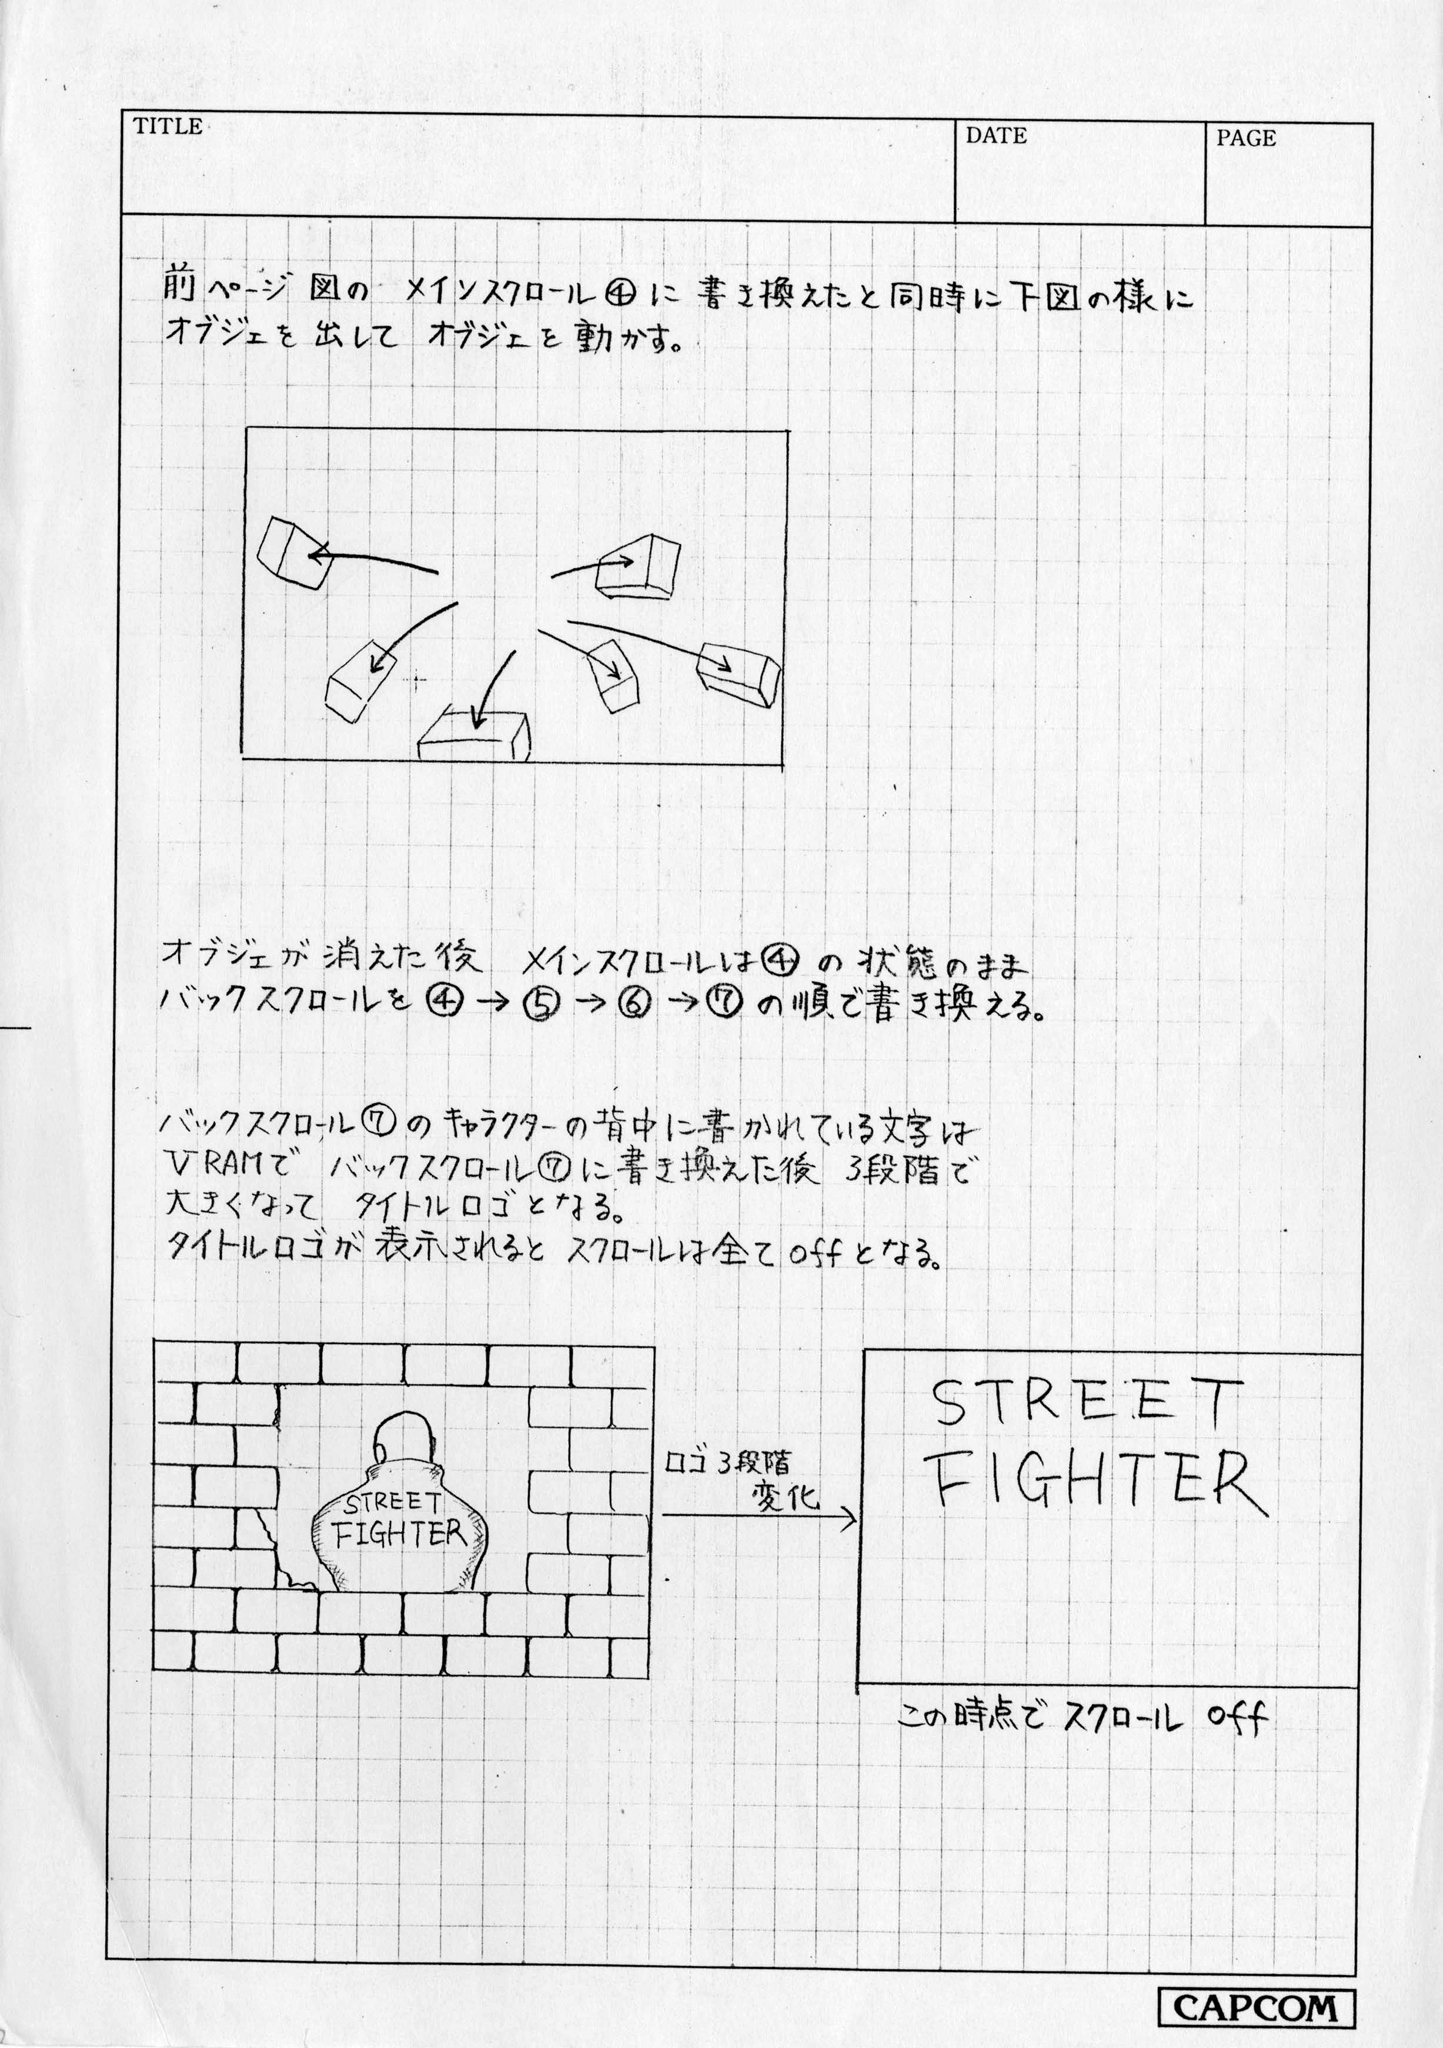 TITLE
DATE
PAGE
前ページ図の メインスクロール④に 書き換えたと同時に下図の様に
オブジェを出して オブジェを動かす。
オブジェが消えた後 メインスクロールは④の状態のまま
バックスクロールを④→⑤→⑥→⑦の順で書き換える。
バックスクロール⑦のキャラクターの背中に書かれている文字は
VRAMで バックスクロール⑦に書き換えた後 3段階で
大きくなって タイトルロゴとなる。
タイトルロゴが表示されると スクロールは全てoffとなる。
STREET
FIGHTER
ロゴ3段階
変化
STREET
FIGHTER
この時点でスクロール off
CAPCOM